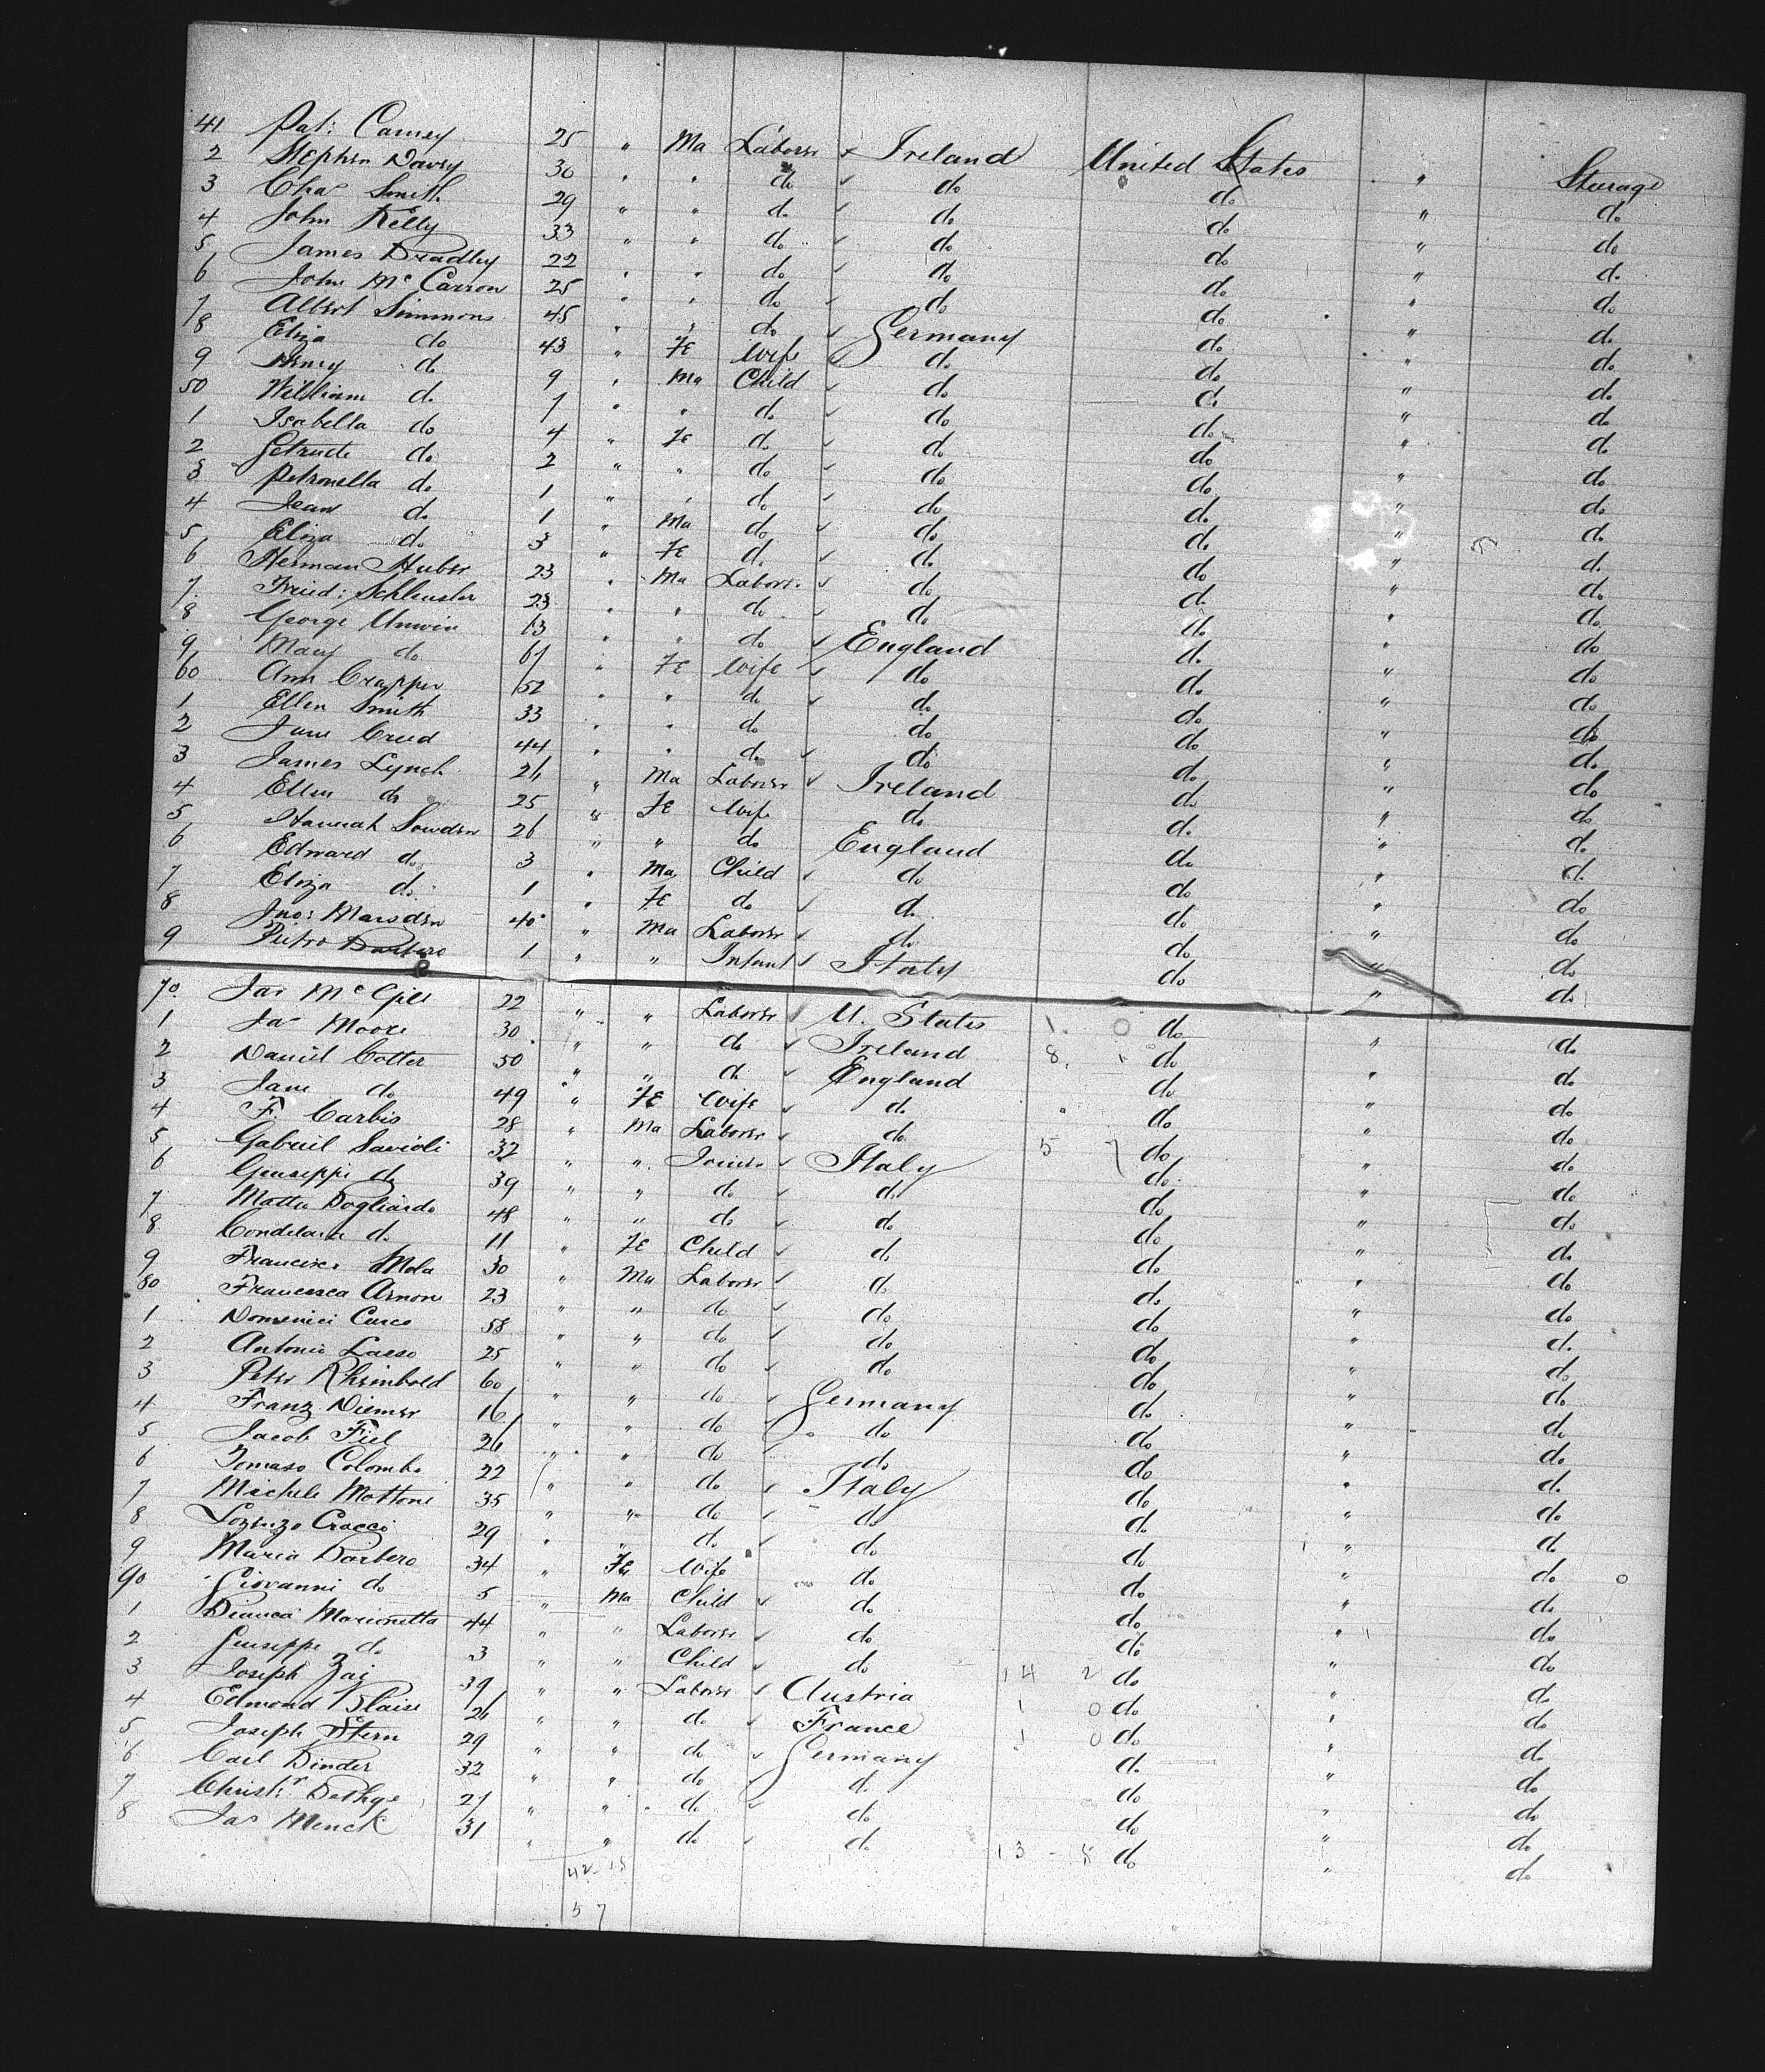 41 Pat: Carney 25 " Ma Laborer Ireland United States " Sterage
2 Stephen Davey 30 " " do do do " do
3 Chas Smith 29 " " do do do " do
4 John Kelly 33 " " do do do " do
5 James Bradley 22 " " do do do " do
6 John McCarron 25 " " do do do " do
7 Albert Simmons 45 " " do Germany do " do
8 Eliza do 43 " Fe Wife do do " do
9 Henry do 9 " Ma Child do do " do
50 William do 7 " " do do do " do
1 Isabella do 4 " Fe do do do " do
2 Getrude do 2 " " do do do " do
3 Petronella do 1 " " do do do " do
4 Jean do 1 " Ma do do do " do
5 Eliza do 3 " Fe do do do " do
6 Herman Huber 23 " Ma Laborer do do " do
7 Fried: Schleusler 23 " " do do do " do
8 George Unwin 63 " " do England do " do
9 Mary do 67 " Fe Wife do do " do
60 Ann Crapper 52 " " do do do " do
1 Ellen Smith 33 " " do do do " do
2 Jane Creed 44 " " do do do " do
3 James Lynch 26 " Ma Laborer Ireland do " do
4 Ellen do 25 " Fe Wife do do " do
5 Hannah Sowden 26 " " do England do " do
6 Edward do 3 " Ma Child do do " do
7 Eliza do 1 " Fe do do do " do
8 Jno: Marsden 40 " Ma Laborer do do " do
9 Pietro Barbero 1 " " Infant Italy do " do
70 Jas McGill 22 " " Laborer U. States 1 0 do " do
1 Jas Moore 30 " " do Ireland 8 1 do " do
2 Daniel Cotter 50 " " do England do " do
3 Jane do 49 " Fe Wife do do " do
4 F. Carbis 28 " Ma Laborer do do " do
5 Gabriel Savioli 32 " " Joiner Italy 5 7 do " do
6 Giuseppi do 39 " " do do do " do
7 Matteo Dogliardo 48 " " do do do " do
8 Condelaria do 11 " Fe Child do do " do
9 Francisco Mola 30 " Ma Laborer do do " do
80 Francesca Arnone 23 " " do do do " do
1 Domenici Curco 58 " " do do do " do
2 Antonio Lasso 25 " " do do do " do
3 Peter Rheinbold 60 " " do Germany do " do
4 Franz Diemer 16 " " do do do " do
5 Jacob Fiel 26 " " do do do " do
6 Tomaso Colombo 22 " " do Italy do " do
7 Michele Mottoni 35 " " do do do " do
8 Lorenzo Crocci 29 " " do do do " do
9 Maria Barbero 34 " Fe Wife do do " do
90 Giovanni do 5 " Ma Child do do " do
1 Bianca Marionetta 44 " " Laborer do do " do
2 Giuseppe do 3 " " Child do do " do
3 Joseph Zai 39 " " Laborer Austria 14 2 do " do
4 Edmond Blaise 26 " " do France 1 0 do " do
5 Joseph Stern 29 " " do Germany 1 0 do " do
6 Carl Binder 32 " " do do do " do
7 Christr Bethge 27 " " do do do " do
8 Jas Menck 31 " " do do 13 - 5 do " do
42 15
57